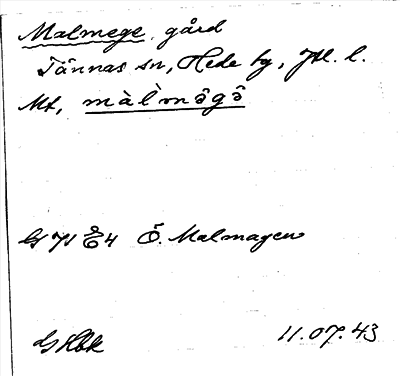 Malmege, gård
Tännas sn, Hede tg, Jtl. l.
Mt, màl`môgô
Ö. Malmagen
11.07.43